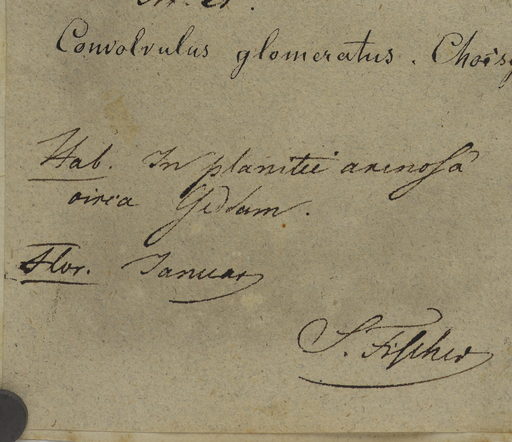 Convolvulus glomeratus. Choisy
Hab. In planitie arenosâ
circa Geddam.
Flor. Januar
S. Fischer